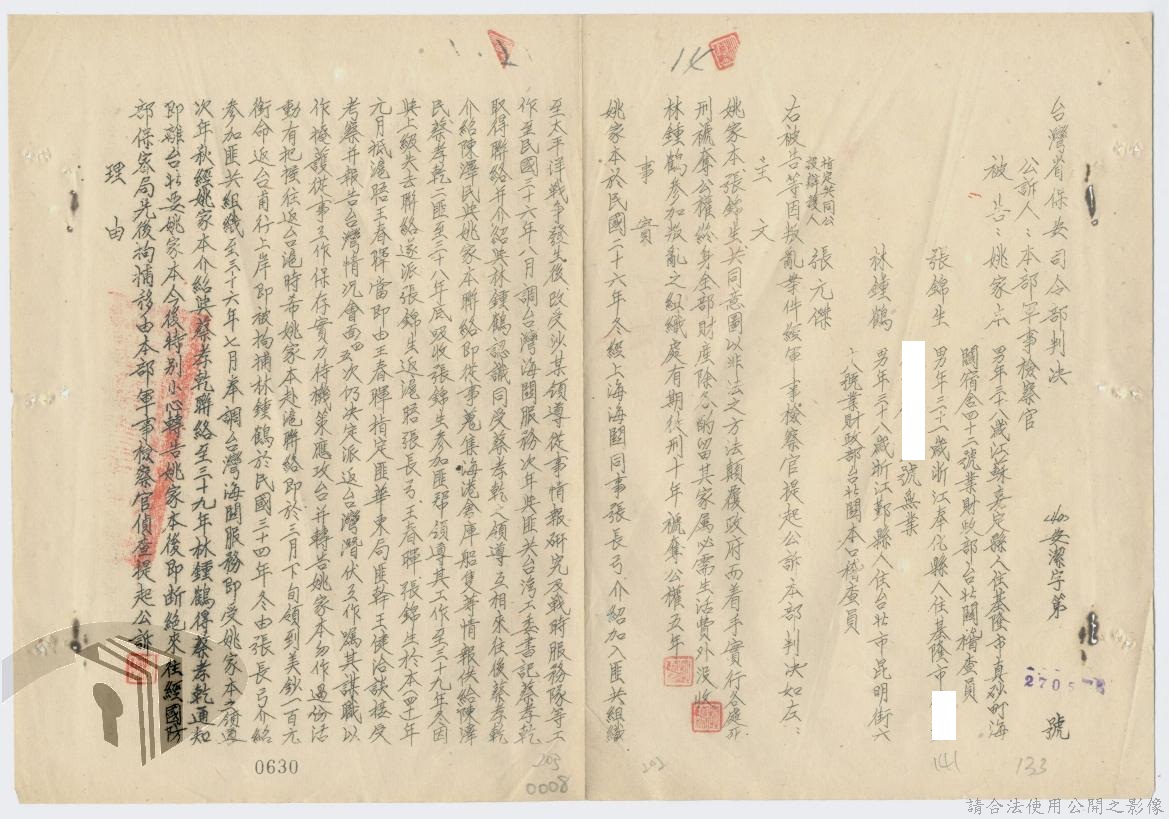 台灣省保安司令部判决
㊵安潔字第
號
2705
公訴人：本部軍事檢察官
被告：姚家本 男年三十八歲江蘇嘉定縣人住基隆市真砂町海
關宿舍四十二號業財政部台北關稽查員
張錦生 男年三十一歲浙江奉化縣人住基隆市
號無業
林鍾鶴 男年三十八歲浙江鄞縣人住台北市昆明街六
六號業財政部台北關本口稽查員
指定共同公
設辯護人 張元傑
右被告等因叛亂案件經軍事檢察官提起公訴本部判决如左：
主文
姚家本張錦生共同意圖以非法之方法顛覆政府而着手實行各處死
刑褫奪公權終身全部財產除各酌留其家屬必需生活費外沒收
林鍾鶴參加叛亂之組織處有期徒刑十年褫奪公權五年
事實
姚家本於民國二十六年冬經上海海關同事張長弓介紹加入匪共組織
至太平洋戰爭發生後改受沙某領導從事情報研究及戰時服務隊等工
作至民國三十六年八月調台灣海關服務次年與匪共台湾工委書記蔡孝乾
取得聯絡并介紹與林鍾鶴認識同受蔡孝乾之領導互相來往後蔡孝乾
介紹陳澤民與姚家本聯絡即從事蒐集海港倉庫船隻等情報供給陳澤
民蔡孝乾二匪至三十八年底吸收張錦生參加匪幫領導其工作至三十九年冬因
與上級失去聯絡遂派張錦生返滬晤張長弓王春暉張錦生於本(四十)年
元月抵滬晤王春暉當即由王春暉指定匪華東局匪幹王健洽談接受
考察并報告台灣情况會面四五次仍决定派返台灣潛伏工作囑其謀職以
作掩護從事工作保存實力待機策應攻台并轉告姚家本勿作過份活
動有把握往返台滬時希姚家本赴滬聯絡即於三月下旬領到美鈔一百元
銜命返台甫行上岸即被拘捕林鍾鶴於民國三十四年冬由張長弓介紹
參加匪共組織至三十六年七月奉調台灣海關服務即受姚家本之領導
次年秋經姚家本介紹與蔡孝乾聯絡至三十九年林鍾鶴得蔡孝乾通知
即離台北要姚家本今後特别小心轉告姚家本後即斷絕來往經國防
部保密局先後拘捕移由本部軍事檢察官偵查提起公訴
理由
133
141
203
203
0008
0630
請合法使用公開之影像